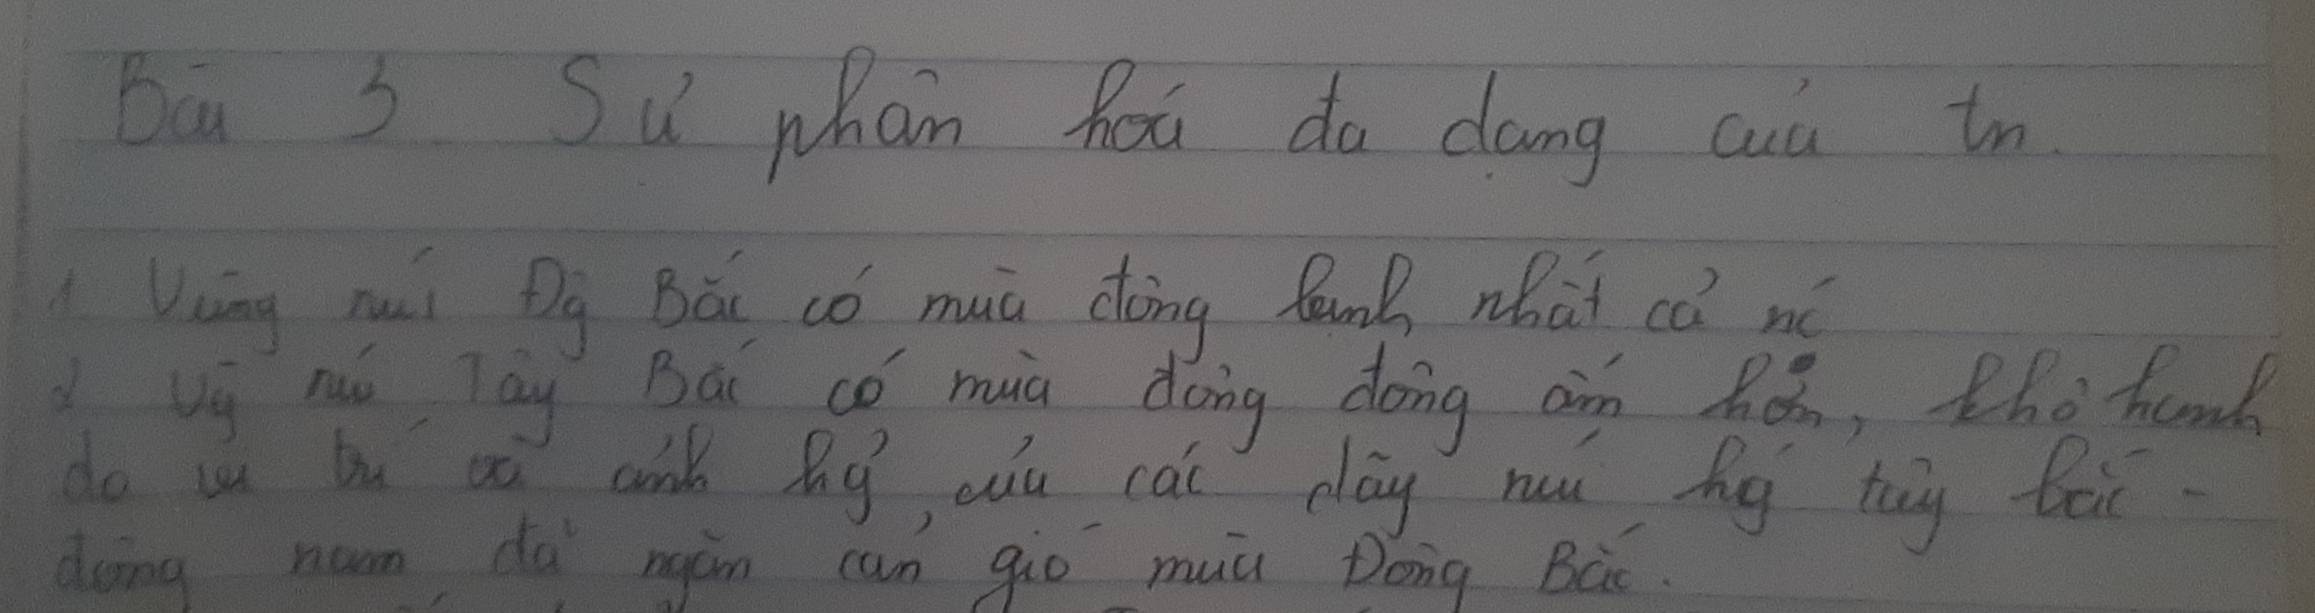 Bài 3 Sự phân hoá đa dạng của tn
1 Vùng núi Đg Bắc có mùa đông lạnh nhất cả nc
2 Vg núi Tây Bắc có mùa đông đông ấm hơn, khô hanh
do vị trí và ảnh hg, của các dãy núi hg tây bắc -
đông nam đã ngăn cản gió mùa Đông Bắc.